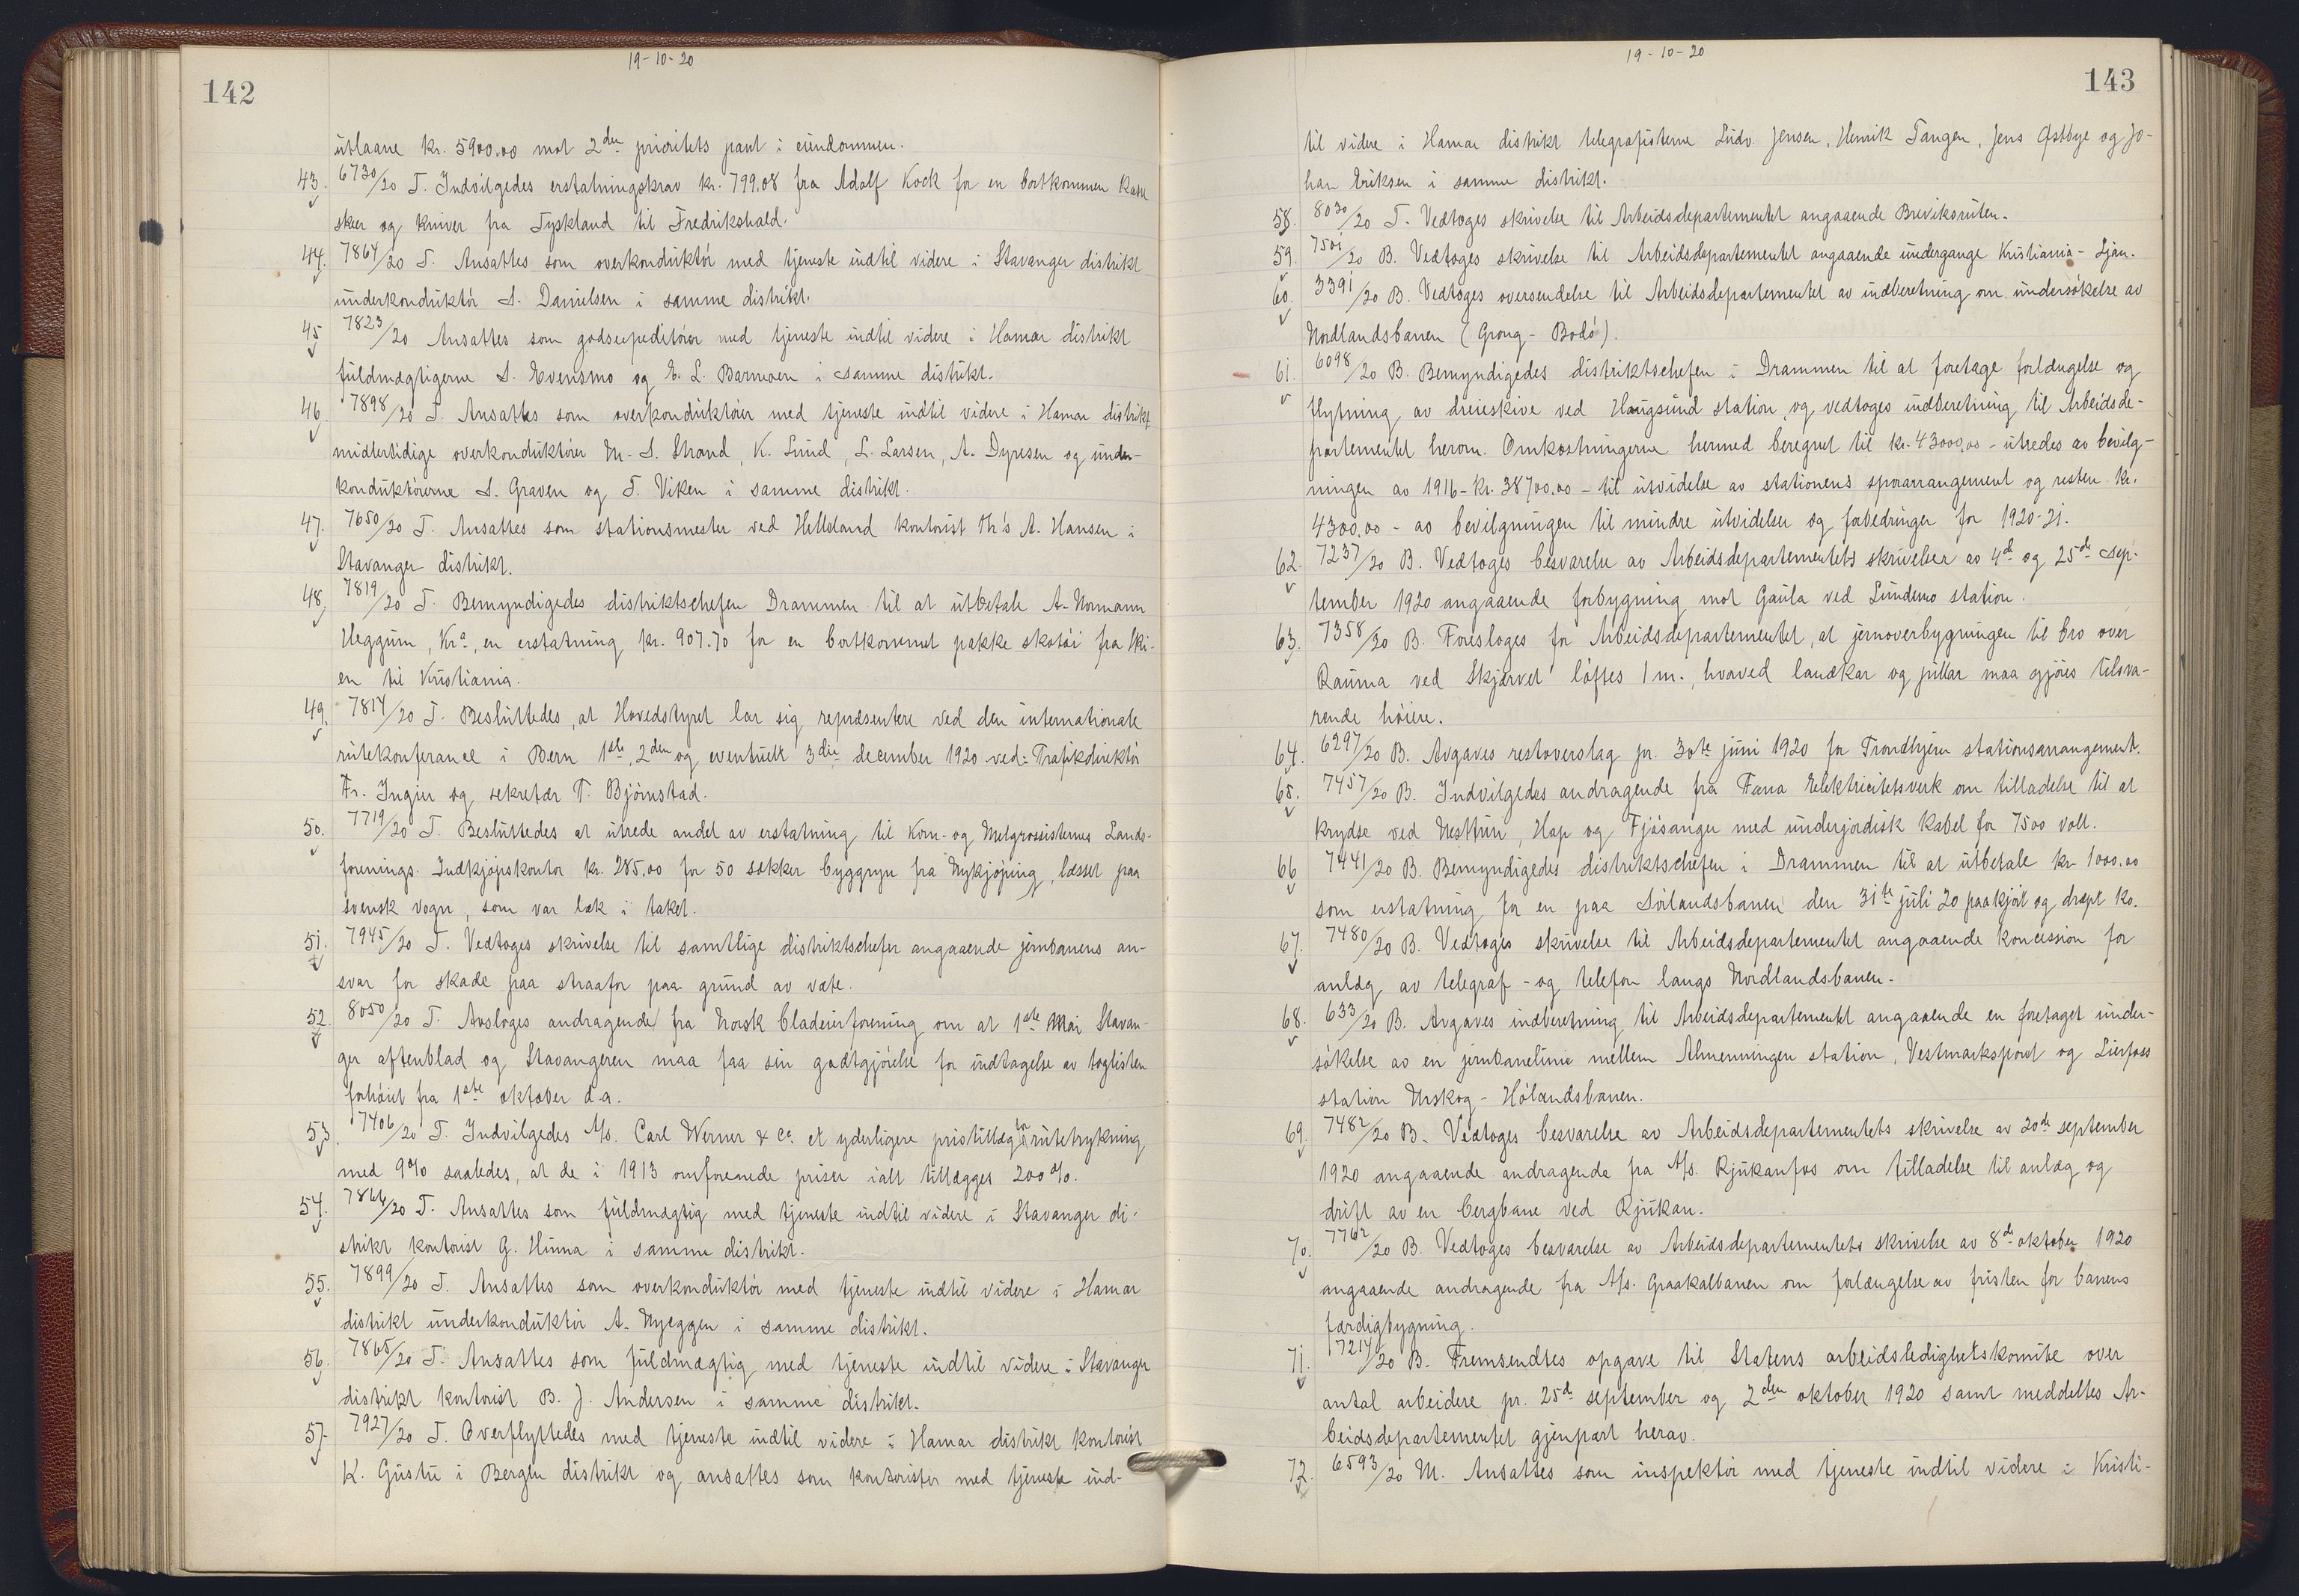 19-10-20
142
utlaane kr. 5900.00 mot 2den prioritets pant i eiendommen.
43. 6730/20 T. Indvilgedes erstatningskrav kr. 799.08 fra Adolf Kock for en bortkommen kasse
skeer og kniver fra Tyskland til Fredrikshald.
44. 7864/20 T. Ansattes som overkonduktør med tjeneste indtil videre i Stavanger distrikt
underkonduktør S. Danielsen i samme distrikt.
45 7823/20 Ansattes som godsexpeditører med tjeneste indtil videre i Hamar distrikt
fuldmægtigerne S. Evensmo og E. L. Barmoen i samme distrikt.
46. 7898/20 T. Ansattes som overkonduktører med tjeneste indtil videre i Hamar distrikt
midlertidige overkonduktører M. S. Strand, K. Lund, L. Larsen, A. Dyresen og under-
konduktørerne S. Graven og T. Viken i samme distrikt.
47. 7650/20 T. Ansattes som stationsmester ved Helleland kontorist Th's A. Hansen i
Stavanger distrikt.
48. 7819/20 T. Bemyndigedes distriktschefen Drammen til at utbetale A. Normann
Heggum, Kra, en erstatning kr. 907.70 for en bortkommet pakke skotøi fra Ski-
en til Kristiania.
49. 7814/20 T. Besluttedes, at Hovedstyret lar sig repræsentere ved den internationale
rutekonferanse i Bern 1ste, 2den og eventuelt 3die december 1920 ved: Trafikdirektør
Fr. Ingier og sekretær T. Bjørnstad.
50. 7719/20 T. Besluttedes at utrede andel av erstatning til Korn- og Melgrossisternes Lands-
forenings Indkjøpskontor kr. 285.00 for 50 sækker byggryn fra Nykjøping, læsset paa
svensk vogn, som var læk i taket.
51. 7945/20 T. Vedtoges skrivelse til samtlige distriktschefer angaaende jernbanens an-
svar for skade paa straafor paa grund av væte.
52. 8050/20 T. Avsloges andragende fra Norsk bladeierforening om at 1ste Mai Stavan-
ger aftenblad og Stavangeren maa faa sin godtgjørelse for indtagelse av toglisten
forhøiet fra 1ste oktober d.a.
53. 7406/20 T. Indvilgedes A/s. Carl Werner & Co. et yderligere pristillæg for rutetrykning
med 9% saaledes, at de i 1913 omforenede priser ialt tillægges 200%.
54. 7866/20 T. Ansattes som fuldmægtig med tjeneste indtil videre i Stavanger di-
strikt kontorist G. Hinna i samme distrikt.
55. 7899/20 T. Ansattes som overkonduktør med tjeneste indtil videre i Hamar
distrikt underkonduktør A. Nyeggen i samme distrikt.
56. 7865/20 T. Ansattes som fuldmægtig med tjeneste indtil videre i Stavanger
distrikt kontorist B. J. Andersen i samme distrikt.
57. 7927/20 T. Overflyttedes med tjeneste indtil videre i Hamar distrikt kontorist
K. Gustu i Bergen distrikt og ansattes som kontorister med tjeneste ind-
19-10-20
143
til videre i Hamar distrikt telegrafisterne Ludv. Jensen, Henrik Tangen, Jens Østbye og Jo-
han Eriksen i samme distrikt.
58. 8030/20 T. Vedtoges skrivelse til Arbeidsdepartementet angaaende Breviksruten.
59. 7501/20 B. Vedtoges skrivelse til Arbeidsdepartementet angaaende undergange Kristiania - Ljan.
60. 3391/20 B. Vedtoges oversendelse til Arbeidsdepartementet av indberetning om undersøkelse av
Nordlandsbanen (Grong - Bodø).
61. 6098/20 B. Bemyndigedes distriktschefen i Drammen til at foretage forlængelse og
flytning av dreieskive ved Haugsund station og vedtoges indberetning til Arbeidsde-
partementet herom. Omkostningerne hermed beregnet til kr. 43000,00 - utredes av bevilg-
ningen av 1916 - kr. 38700.00 - til utvidelse av stationens sporarrangement og resten kr.
4300.00 - av bevilgningen til mindre utvidelser og forbedringer for 1920-21.
62. 7237/20 B. Vedtoges besvarelse av Arbeidsdepartementets skrivelser av 4de og 25de sep-
tember 1920 angaaende forbygning mot Gaula ved Lundemo station.
63. 7358/20 B. Foresloges for Arbeidsdepartementet, at jernoverbygningen til bro over
Rauma ved Skjærvet løftes 1 m., hvorved landkar og pillar maa gjøres tilsva-
rende høiere.
64. 6297/20 B. Avgaves restoverslag pr. 30te juni 1920 for Trondhjem stationsarrangement.
65. 7457/20 B. Indvilgedes andragende fra Fana Elektricitetsverk om tilladelse til at
krydse ved Nesttun, Hop og Fjøsanger med underjordisk kabel for 7500 volt.
66 7441/20 B. Bemyndigedes distriktschefen i Drammen til at utbetale kr 1000.00
som erstatning for en paa Sørlandsbanen den 31te juli 20 paakjørt og dræpt ko.
67. 7480/20 B. Vedtoges skrivelse til Arbeidsdepartementet angaaende koncession for
anlæg av telegraf - og telefon langs Nordlandsbanen.
68. 633/20 B. Avgaves indberetning til Arbeidsdepartementet angaaende en foretaget under-
søkelse av en jernbanelinie mellem Almenningen station, Vestmarksporet og Lierfoss
station Urskog - Hølandsbanen.
69. 7482/20 B. Vedtoges besvarelse av Arbeidsdepartementets skrivelse av 20de september
1920 angaaende andragende fra A/s. Rjukanfos om tilladelse til anlæg og
drift av en bergbane ved Rjukan.
70. 7762/20 B. Vedtoges besvarelse av Arbeidsdepartementets skrivelse av 8de oktober 1920
angaaende andragende fra A/s. Graakalbanen om forlængelse av fristen for banens
færdigbygning.
71. 7214/20 B. Fremsendtes opgave til Statens arbeidsledighetskomite over
antal arbeidere pr. 25de september og 2den oktober 1920 samt meddeltes Ar-
beidsdepartementet gjenpart herav.
72. 6593/20 M. Ansattes som inspektør med tjeneste indtil videre i Kristi-